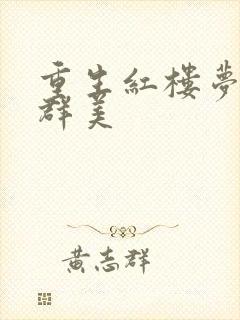 重生紅樓夢
群美
黃志群